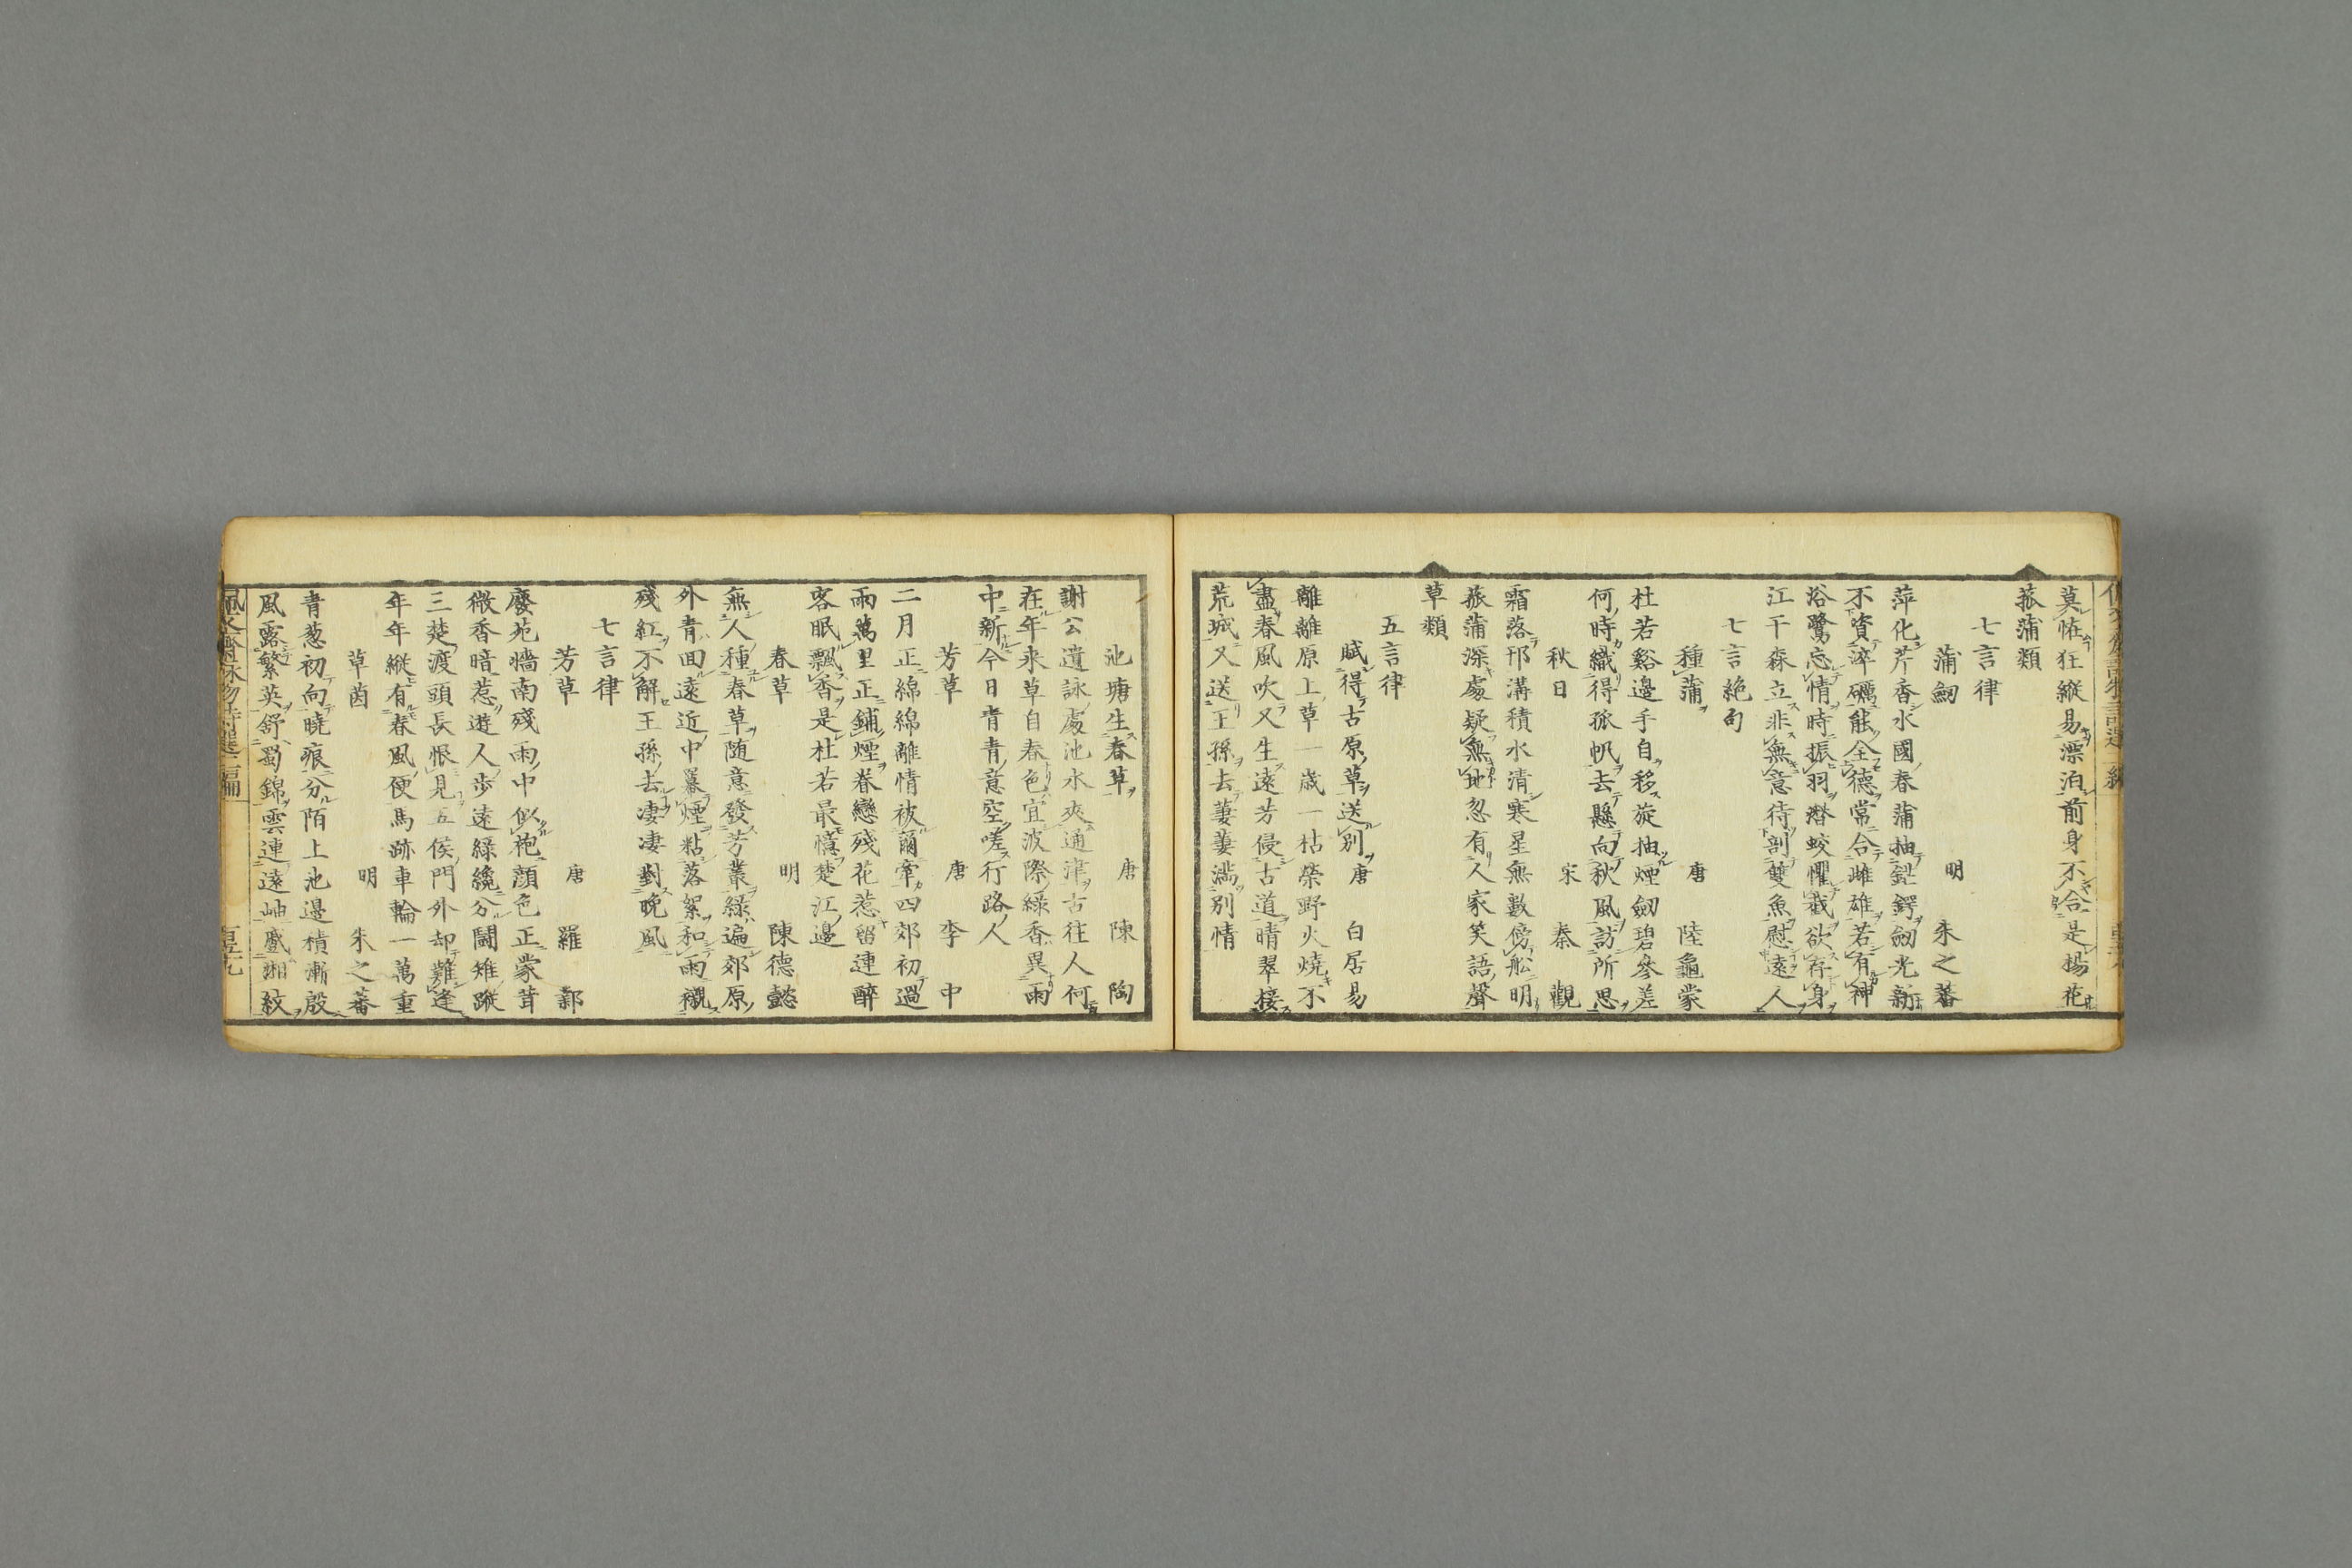 莫恠狂縱易漂泊前身不合是楊花
菰蒲類
七言律
蒲劒 明 朱之蕃
萍化芹香水國春蒲抽鋩鍔劒光新
不資淬礪能全德常合雌雄若有神
浴鷺忘情時振羽潛蛟懼截欲存身
江干森立非無意待剖雙魚慰遠人
七言絶句
種蒲 唐 陸龜蒙
杜若谿邊手自移旋抽煙劒碧參差
何時織得孤帆去懸向秋風訪所思
秋日 宋 秦觀
霜落邗溝積水清寒星無數傍舩明
菰蒲深處疑無地忽有人家笑語聲
草類
五言律
賦得古原草送別 唐 白居易
離離原上草一歳一枯榮野火燒不
盡春風吹又生遠芳侵古道晴翠接
荒城又送王孫去萋萋滿別情
池塘生春草 唐 陳陶
謝公遺詠處池水夾通津古往人何
在年来草自春色宜波際綠香異雨
中新今日青青意空嗟行路人
芳草 唐 李中
二月正綿綿離情被爾牽四郊初過
雨萬里正鋪煙眷戀殘花惹留連醉
客眠飄香是杜若最憶楚江邊
春草 明 陳德懿
無人種春草随意發芳叢綠遍郊原
外青回遠近中羃煙粘落絮和雨襯
殘紅不解王孫去凄凄對晩風
七言律
芳草 唐 羅鄴
廢苑墻南殘雨中似袍顔色正蒙茸
微香暗惹遊人步遠綠纔分鬭雉蹤
三楚渡頭長恨見五侯門外却難逢
年年縱有春風便馬跡車輪一萬重
草茵 明 朱之蕃
青葱初向曉痕分陌上池邊積漸殷
風露繁英舒蜀錦雲連遠岫蹙湘紋